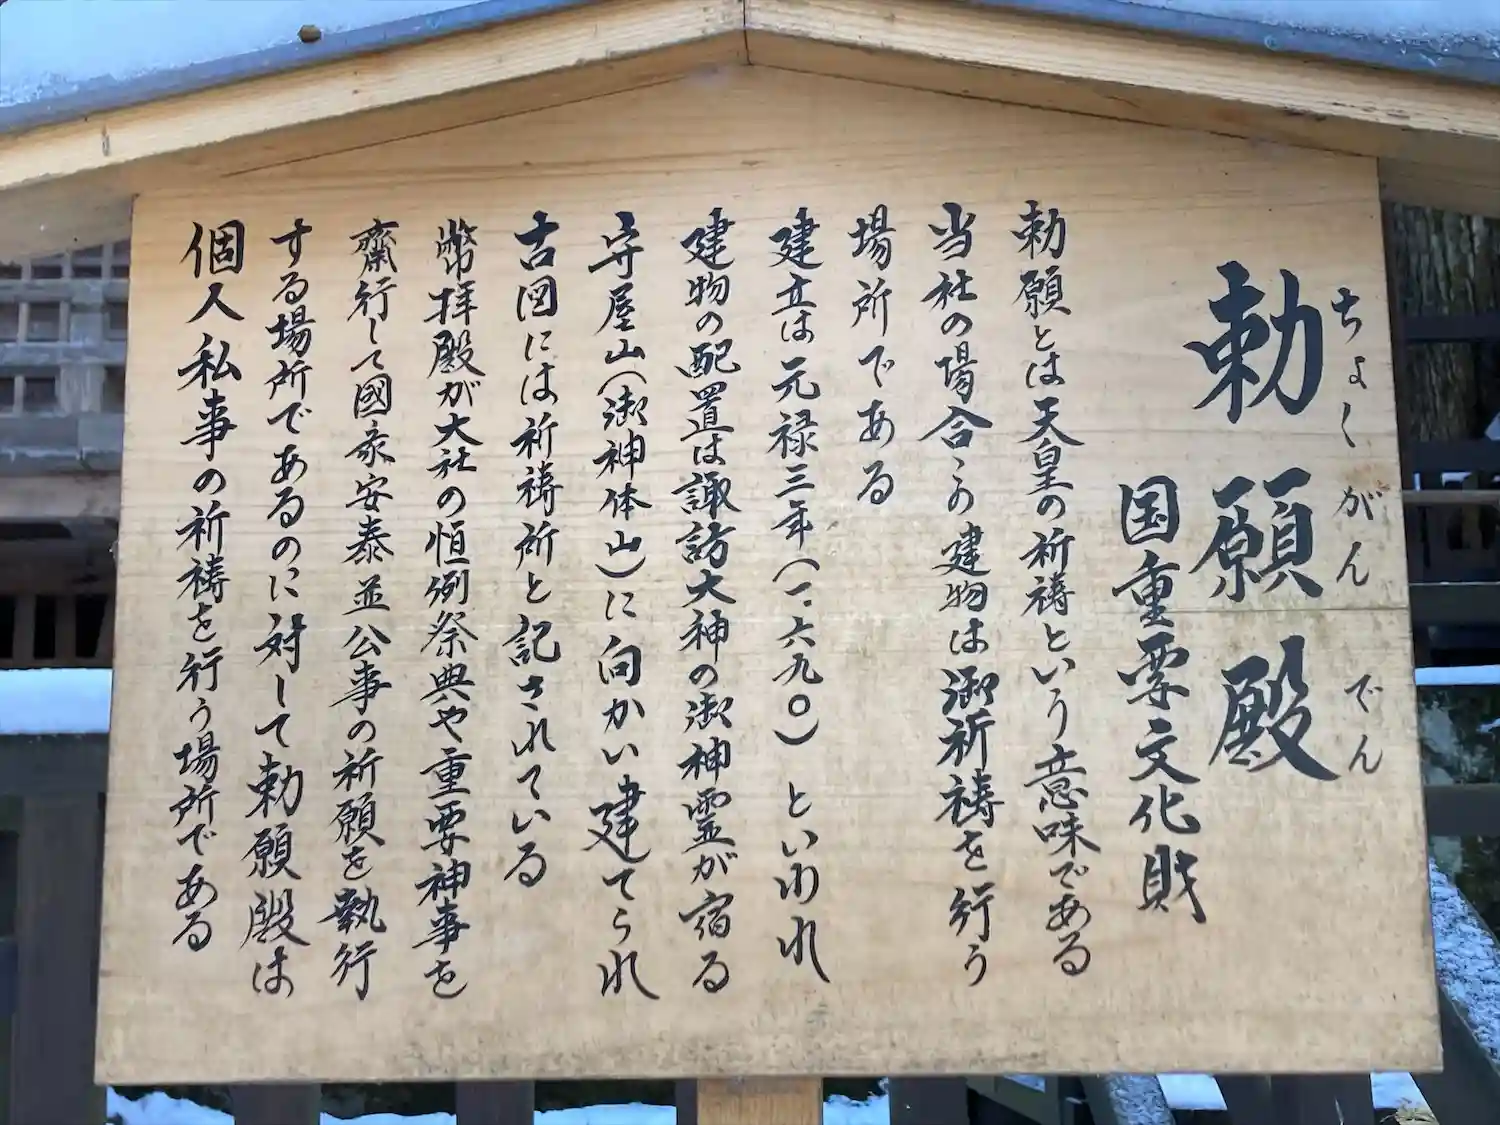 ちょくがんでん
勅願殿
国重要文化財
勅願とは天皇の祈祷という意味である
当社の場合この建物は御祈祷を行う
場所である
建立は元禄三年(一六九〇)といわれ
建物の配置は諏訪大神の御神霊が宿る
守屋山(御神体山)に向かい建てられ
古図には祈祷所と記されている
幣拝殿が大社の恒例祭典や重要神事を
齋行して國家安泰並公事の祈願を執行
する場所であるのに対して勅願殿は
個人私事の祈祷を行う場所である